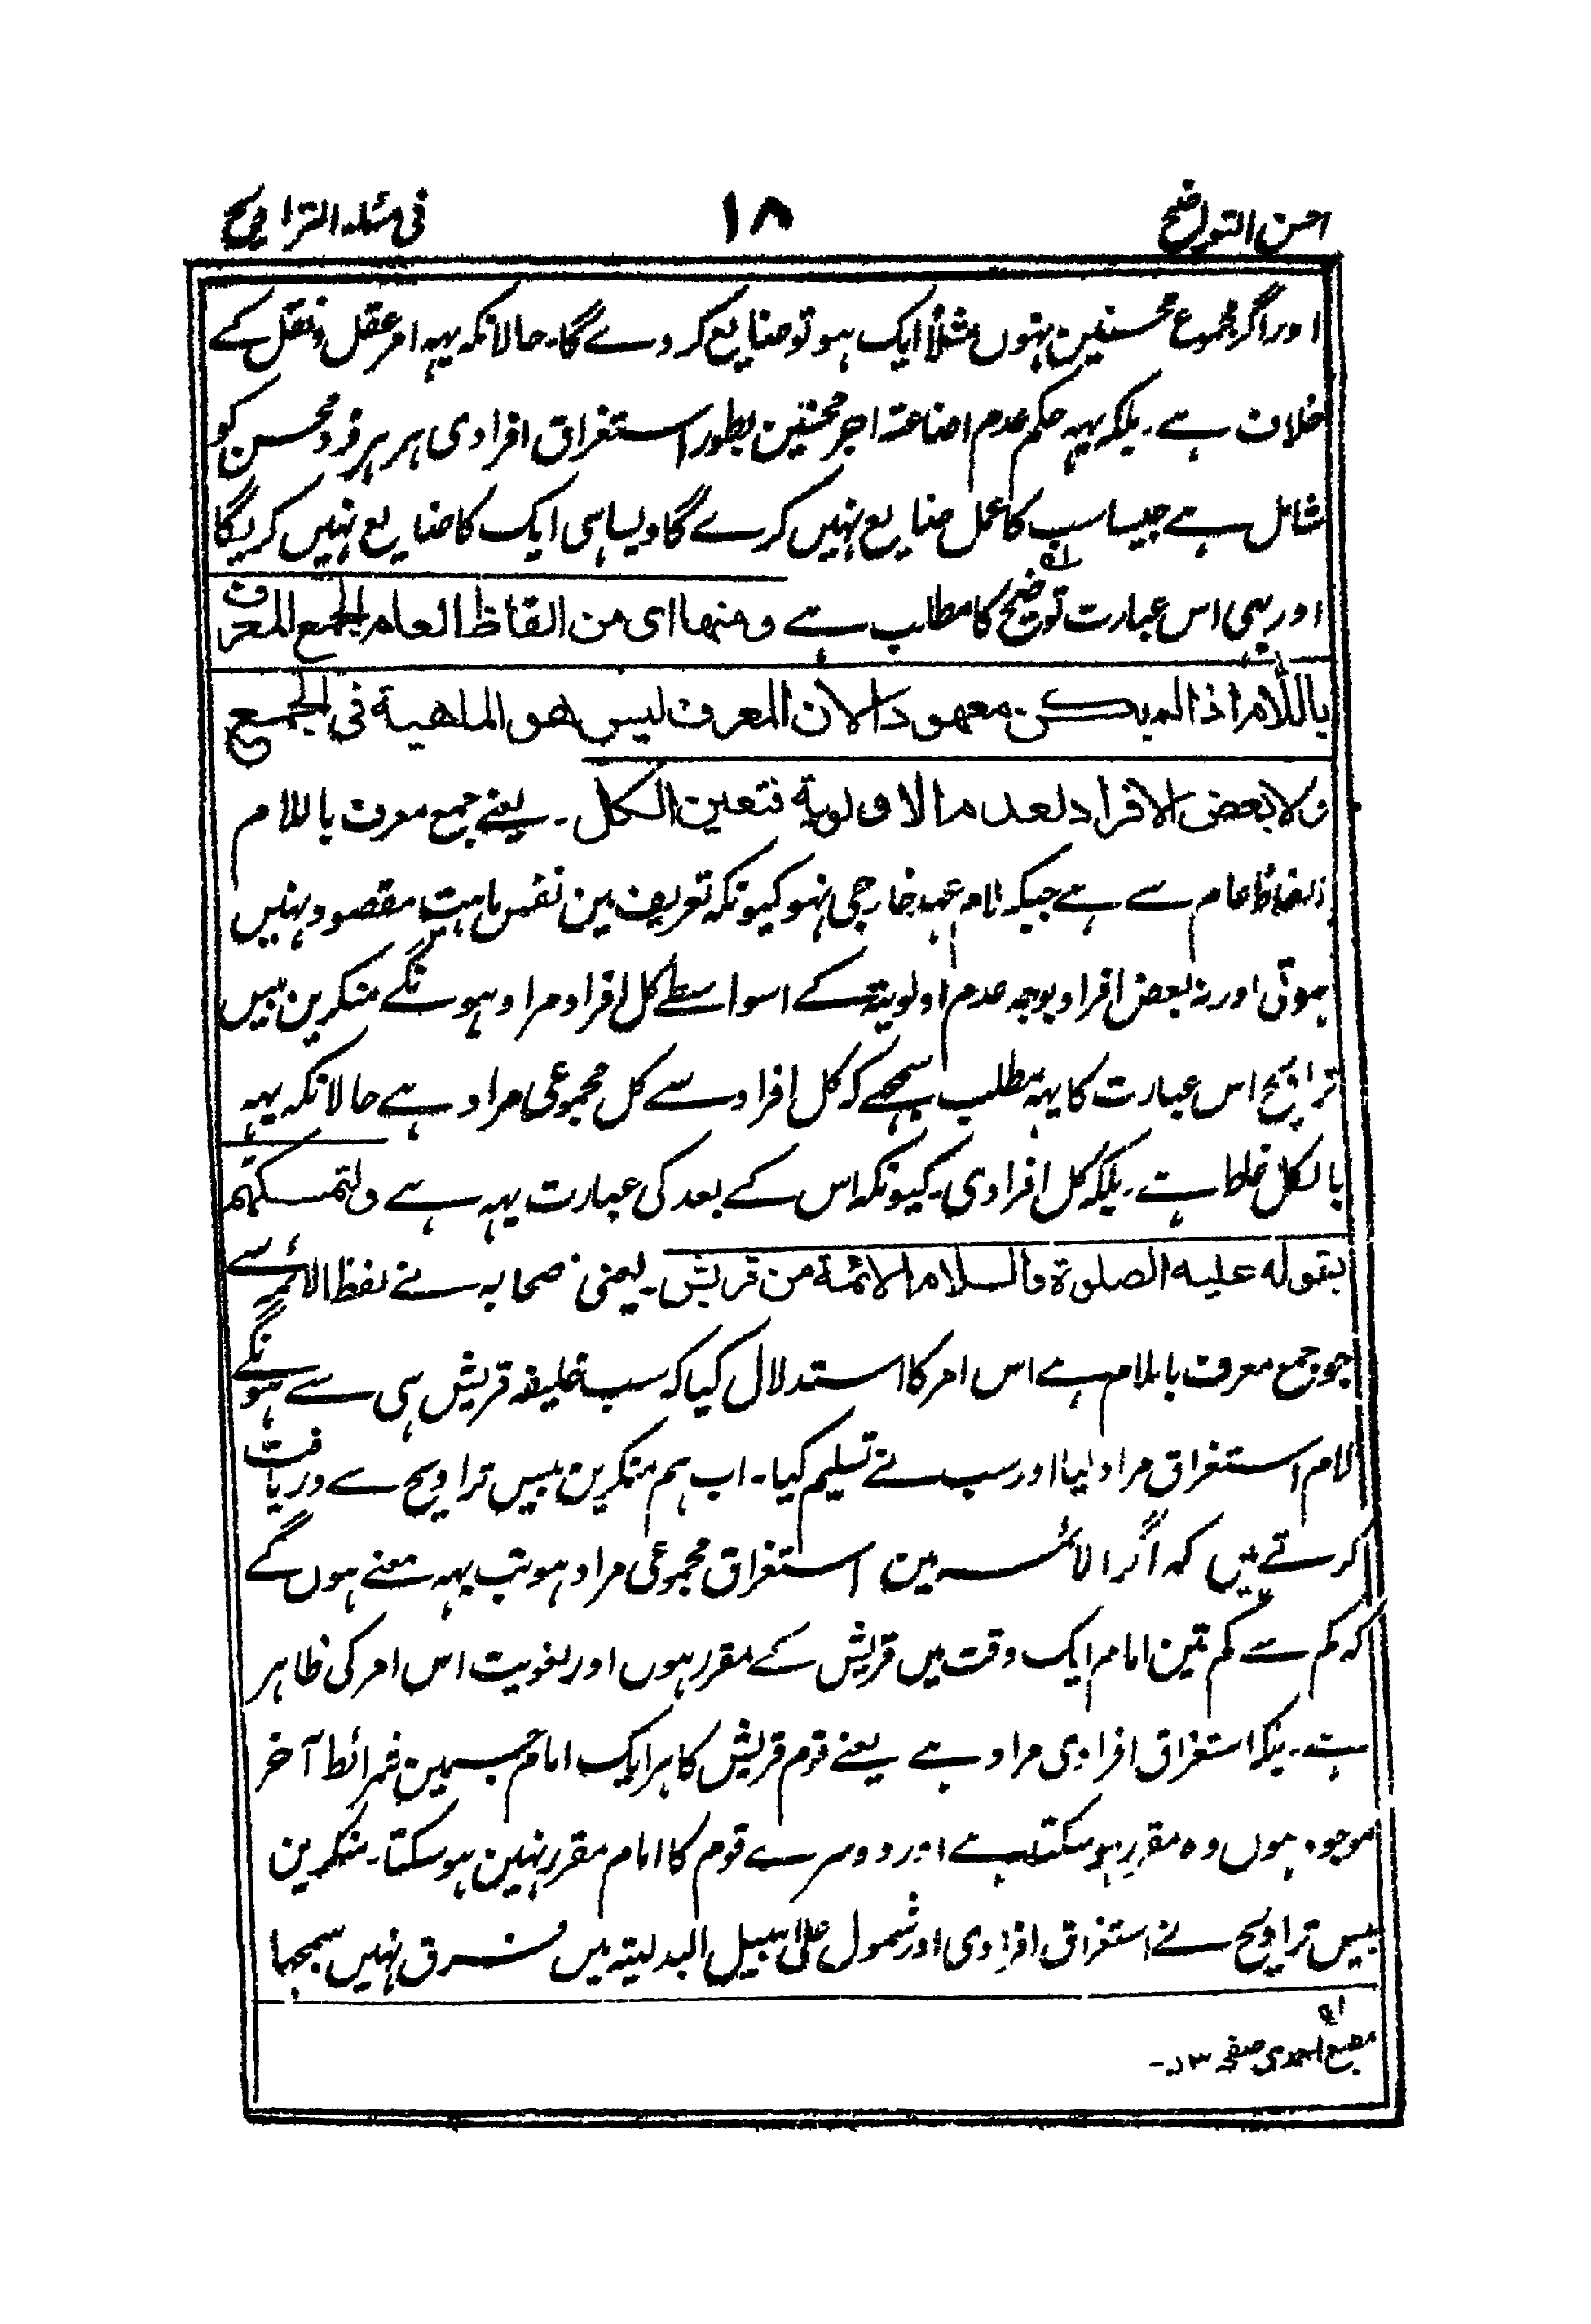 احسن التواضیح ۱۸ فی مسئلۃ التراویح
اور اگر مجموع محسنین نہوں مثلاً ایک ہو تو ضایع کر دے گا۔ حالانکہ یہہ امر عقل و نقل کے
خلاف ہے۔ بلکہ یہہ حکم عدم اضاعۃ اجر محسنین بطور استغراق افرادی ہر ہر فرد محسن کو
شامل ہے جیسا سب کا عمل ضایع نہیں کرے گا ویسا ہی ایک کا ضایع نہیں کریگا
اور یہی اس عبارت توضیح کا مطلب ہے ومنہا ای من الفاظ العام الجمع المعرف
باللام اذا لم یکن معہودا لان المعرف لیس ھو الماھیۃ فی الجمع
ولا بعض الافراد لعدم الاولویۃ فتعین الکل ۔ یعنے جمع معرف باللام
الفاظ عام سے ہے جبکہ لام عہد خارجی نہو کیونکہ تعریف مین نفس ماہیت مقصود نہیں
ہوتی اور نہ بعض افراد بوجہ عدم اولویتہ کے اسواسطے کل افراد مراد ہونگے منکرین بیس
تراویح اس عبارت کا یہہ مطلب سمجھے کہ کل افراد سے کل مجموعی مراد ہے حالانکہ یہہ
بالکل غلط ہے۔ بلکہ کل افرادی۔ کیونکہ اس کے بعد کی عبارت یہہ ہے ولتمسکہم
بقولہ علیہ الصلوۃ والسلام الائمۃ من قریش۔ یعنی صحابہ نے لفظ الائمہ سے
جو جمع معرف بالام ہے اس امر کا استدلال کیا کہ سب خلیفہ قریش ہی سے ہونگے
لام استغراق مراد لیا اور سب نے تسلیم کیا۔ اب ہم منکرین بیس تراویح سے دریافت
کرتے ہیں کہ اگر الائمہ مین استغراق مجموعی مراد ہو تب یہہ معنے ہوں گے
کہ کم سے کم تین امام ایک وقت میں قریش کے مقرر ہوں اور لغویت اس امر کی ظاہر
ہے۔ بلکہ استغراق افرادی مراد ہے یعنے قوم قریش کا ہر ایک امام جسمین شرائط آخر
موجود ہوں وہ مقرر ہو سکتا ہے اور دوسرے قوم کا امام مقرر نہین ہو سکتا۔ منکرین
بیس تراویح نے استغراق افرادی اور شمول علی سبیل البدلیتہ میں فرق نہیں سمجہا
مطبع احمدی صفحہ